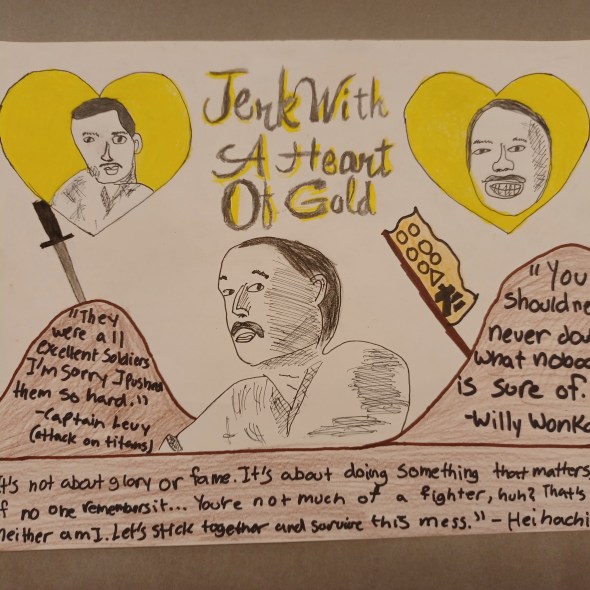 Jerk With
A Heart
Of Gold
"They
were all
Excellent Soldiers
I'm Sorry I pushed
them so hard."
-Captain Levy
(attack on titans)
"You
should ne
never dou
what nobod
is sure of.
-Willy Wonka
t's not about glory or fame. It's about doing something that matters,
f no one remembers it... You're not much of a fighter, huh? That's
neither am I. Let's stick together and survive this mess." - Heihachi